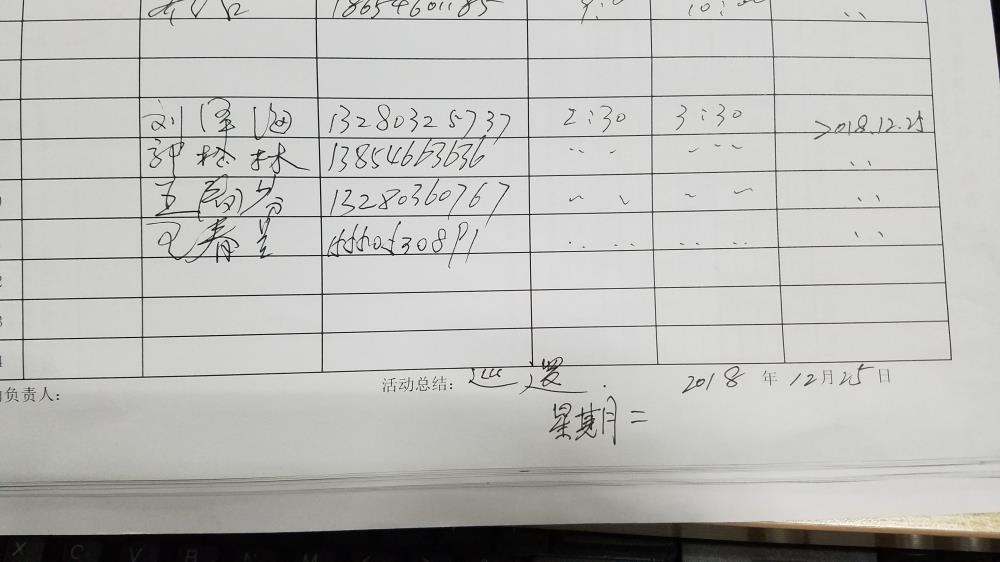 18654601185 9:0 10:00 〃
刘泽海 13280325737 2:30 3:30 2018.12.25
钟松林 13854663636 〃 〃 〃
王国芳 13280360767 〃 〃 〃
王春星 30891 〃 〃 〃
负责人: 活动总结: 2018 年 12月25日
星期二